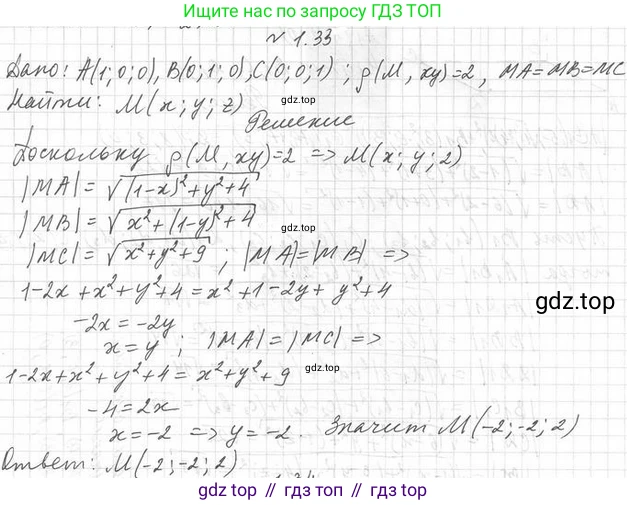 Ищите нас по запросу ГДЗ ТОП
№ 1.33
Дано: A(1;0;0), B(0;1;0), C(0;0;1) ; ρ(M, xy)=2, MA=MB=MC
Найти: M(x; y; z)
gdz.top
Решение
Поскольку ρ(M, xy)=2 => M(x; y; 2)
|MA| = √((1-x)²+y²+4)
|MB| = √(x²+(1-y)²+4)
|MC| = √(x²+y²+9) ; |MA|=|MB| =>
1-2x+x²+y²+4=x²+1-2y+y²+4
gdz.top
-2x=-2y
x=y ; |MA|=|MC| =>
1-2x+x²+y²+4=x²+y²+9
-4=2x
x=-2 => y=-2. Значит M(-2;-2;2)
Ответ: M(-2;-2;2)
gdz.top // гдз.топ // gdz top